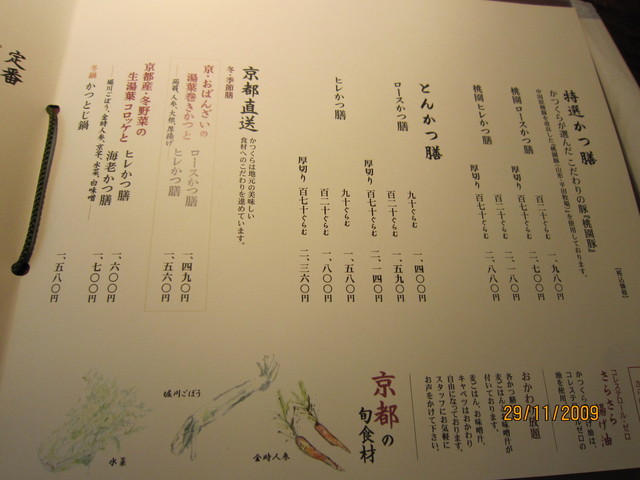 特選かつ膳
かつくらが選んだこだわりの豚『桃園豚』
[税込価格]
桃園ロースかつ膳
百二十ぐらむ
一、九八〇円
厚切り 百七十ぐらむ
二、七〇〇円
桃園ヒレかつ膳
百二十ぐらむ
二、一八〇円
厚切り 百七十ぐらむ
二、八八〇円
とんかつ膳
ロースかつ膳
九十ぐらむ
一、四〇〇円
百二十ぐらむ
一、五九〇円
厚切り 百七十ぐらむ
二、一四〇円
ヒレかつ膳
九十ぐらむ
一、五八〇円
百二十ぐらむ
一、八〇〇円
厚切り 百七十ぐらむ
二、三六〇円
京都直送
かつくらは地元の美味しい
食材へのこだわりを進めています。
冬・季節膳
京・おばんざいの
湯葉巻きかつと
ロースかつ膳
一、四九〇円
ヒレかつ膳
一、五六〇円
京都産・冬野菜の
生湯葉コロッケと
ヒレかつ膳
一、六〇〇円
海老かつ膳
一、七〇〇円
堀川ごぼう、金時人参、京芋、水菜、白味噌
冬鍋 かつとじ鍋
一、五八〇円
定番
コレステロール・ゼロ
さらさら揚げ油
おかわり放題
各かつ膳
付いております。
麦ごはん、お味噌汁、
キャベツはおかわり
自由になっております。
スタッフにお気軽に
お声をかけて下さい。
京都の
旬食材
金時人参
堀川ごぼう
水菜
29/11/2009